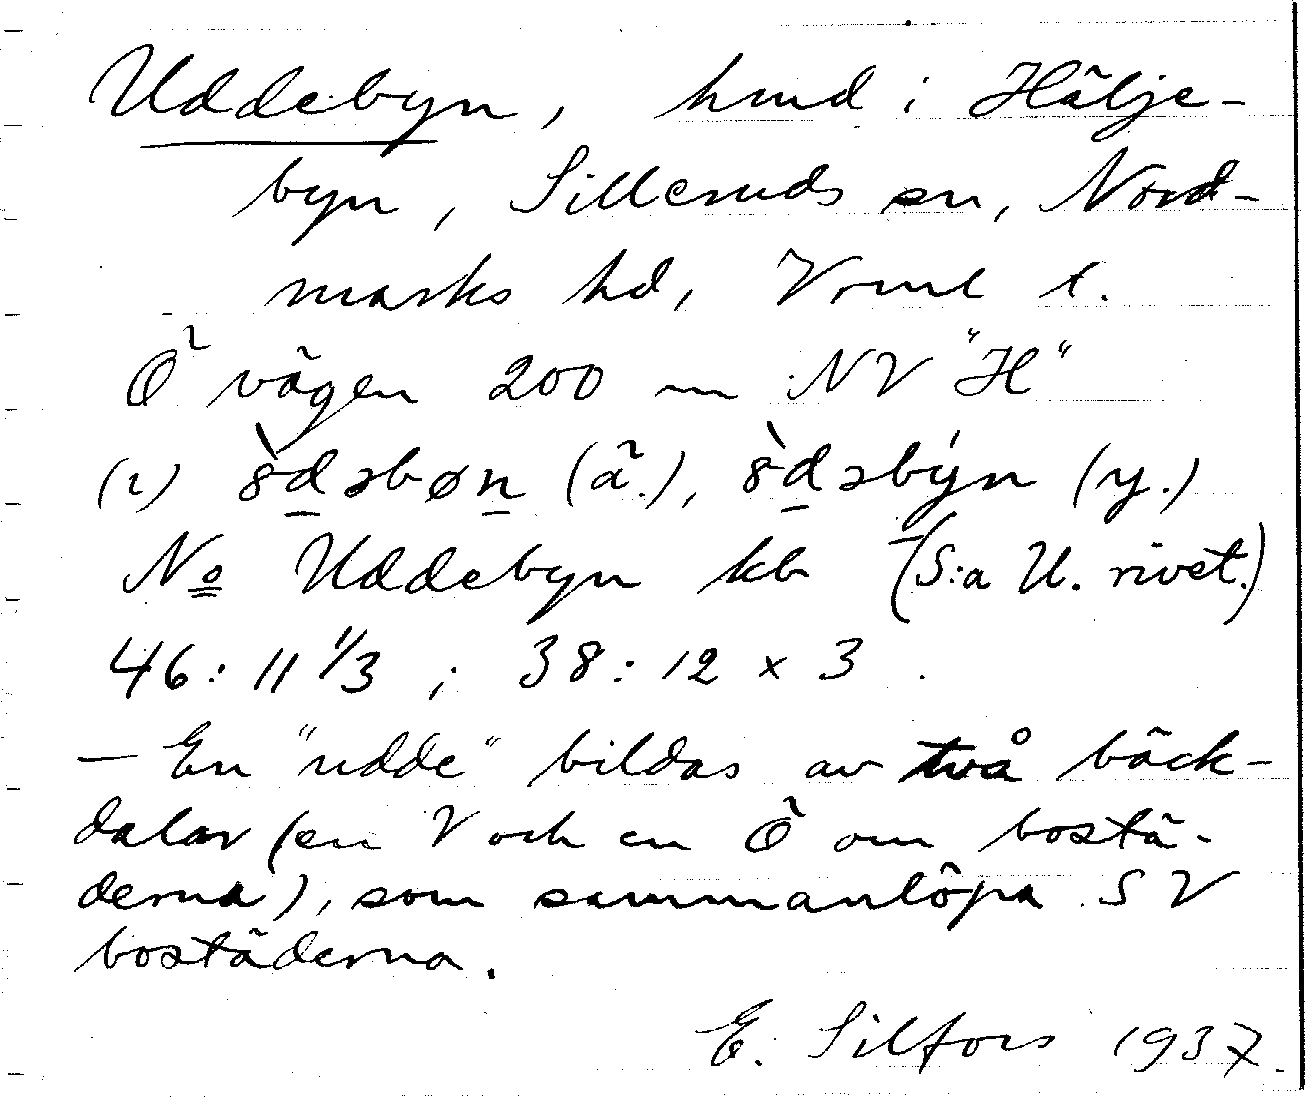 Uddebyn, hmd i Hälje-
byn, Silleruds sn, Nord-
marks hd, Vrml l.
Ö vägen 200 m NV "H"
(1) 8̀dəbøn (ä.), 8̀dəbýn (y.)
No Uddebyn kb (S:a U. rivet.)
46: 11 1/3 ; 38: 12 x 3
— En "udde" bildas av två bäck-
dalar (en V och en Ö om bostä-
derna), som sammanlöpa SV
bostäderna.
E. Silfors 1937.